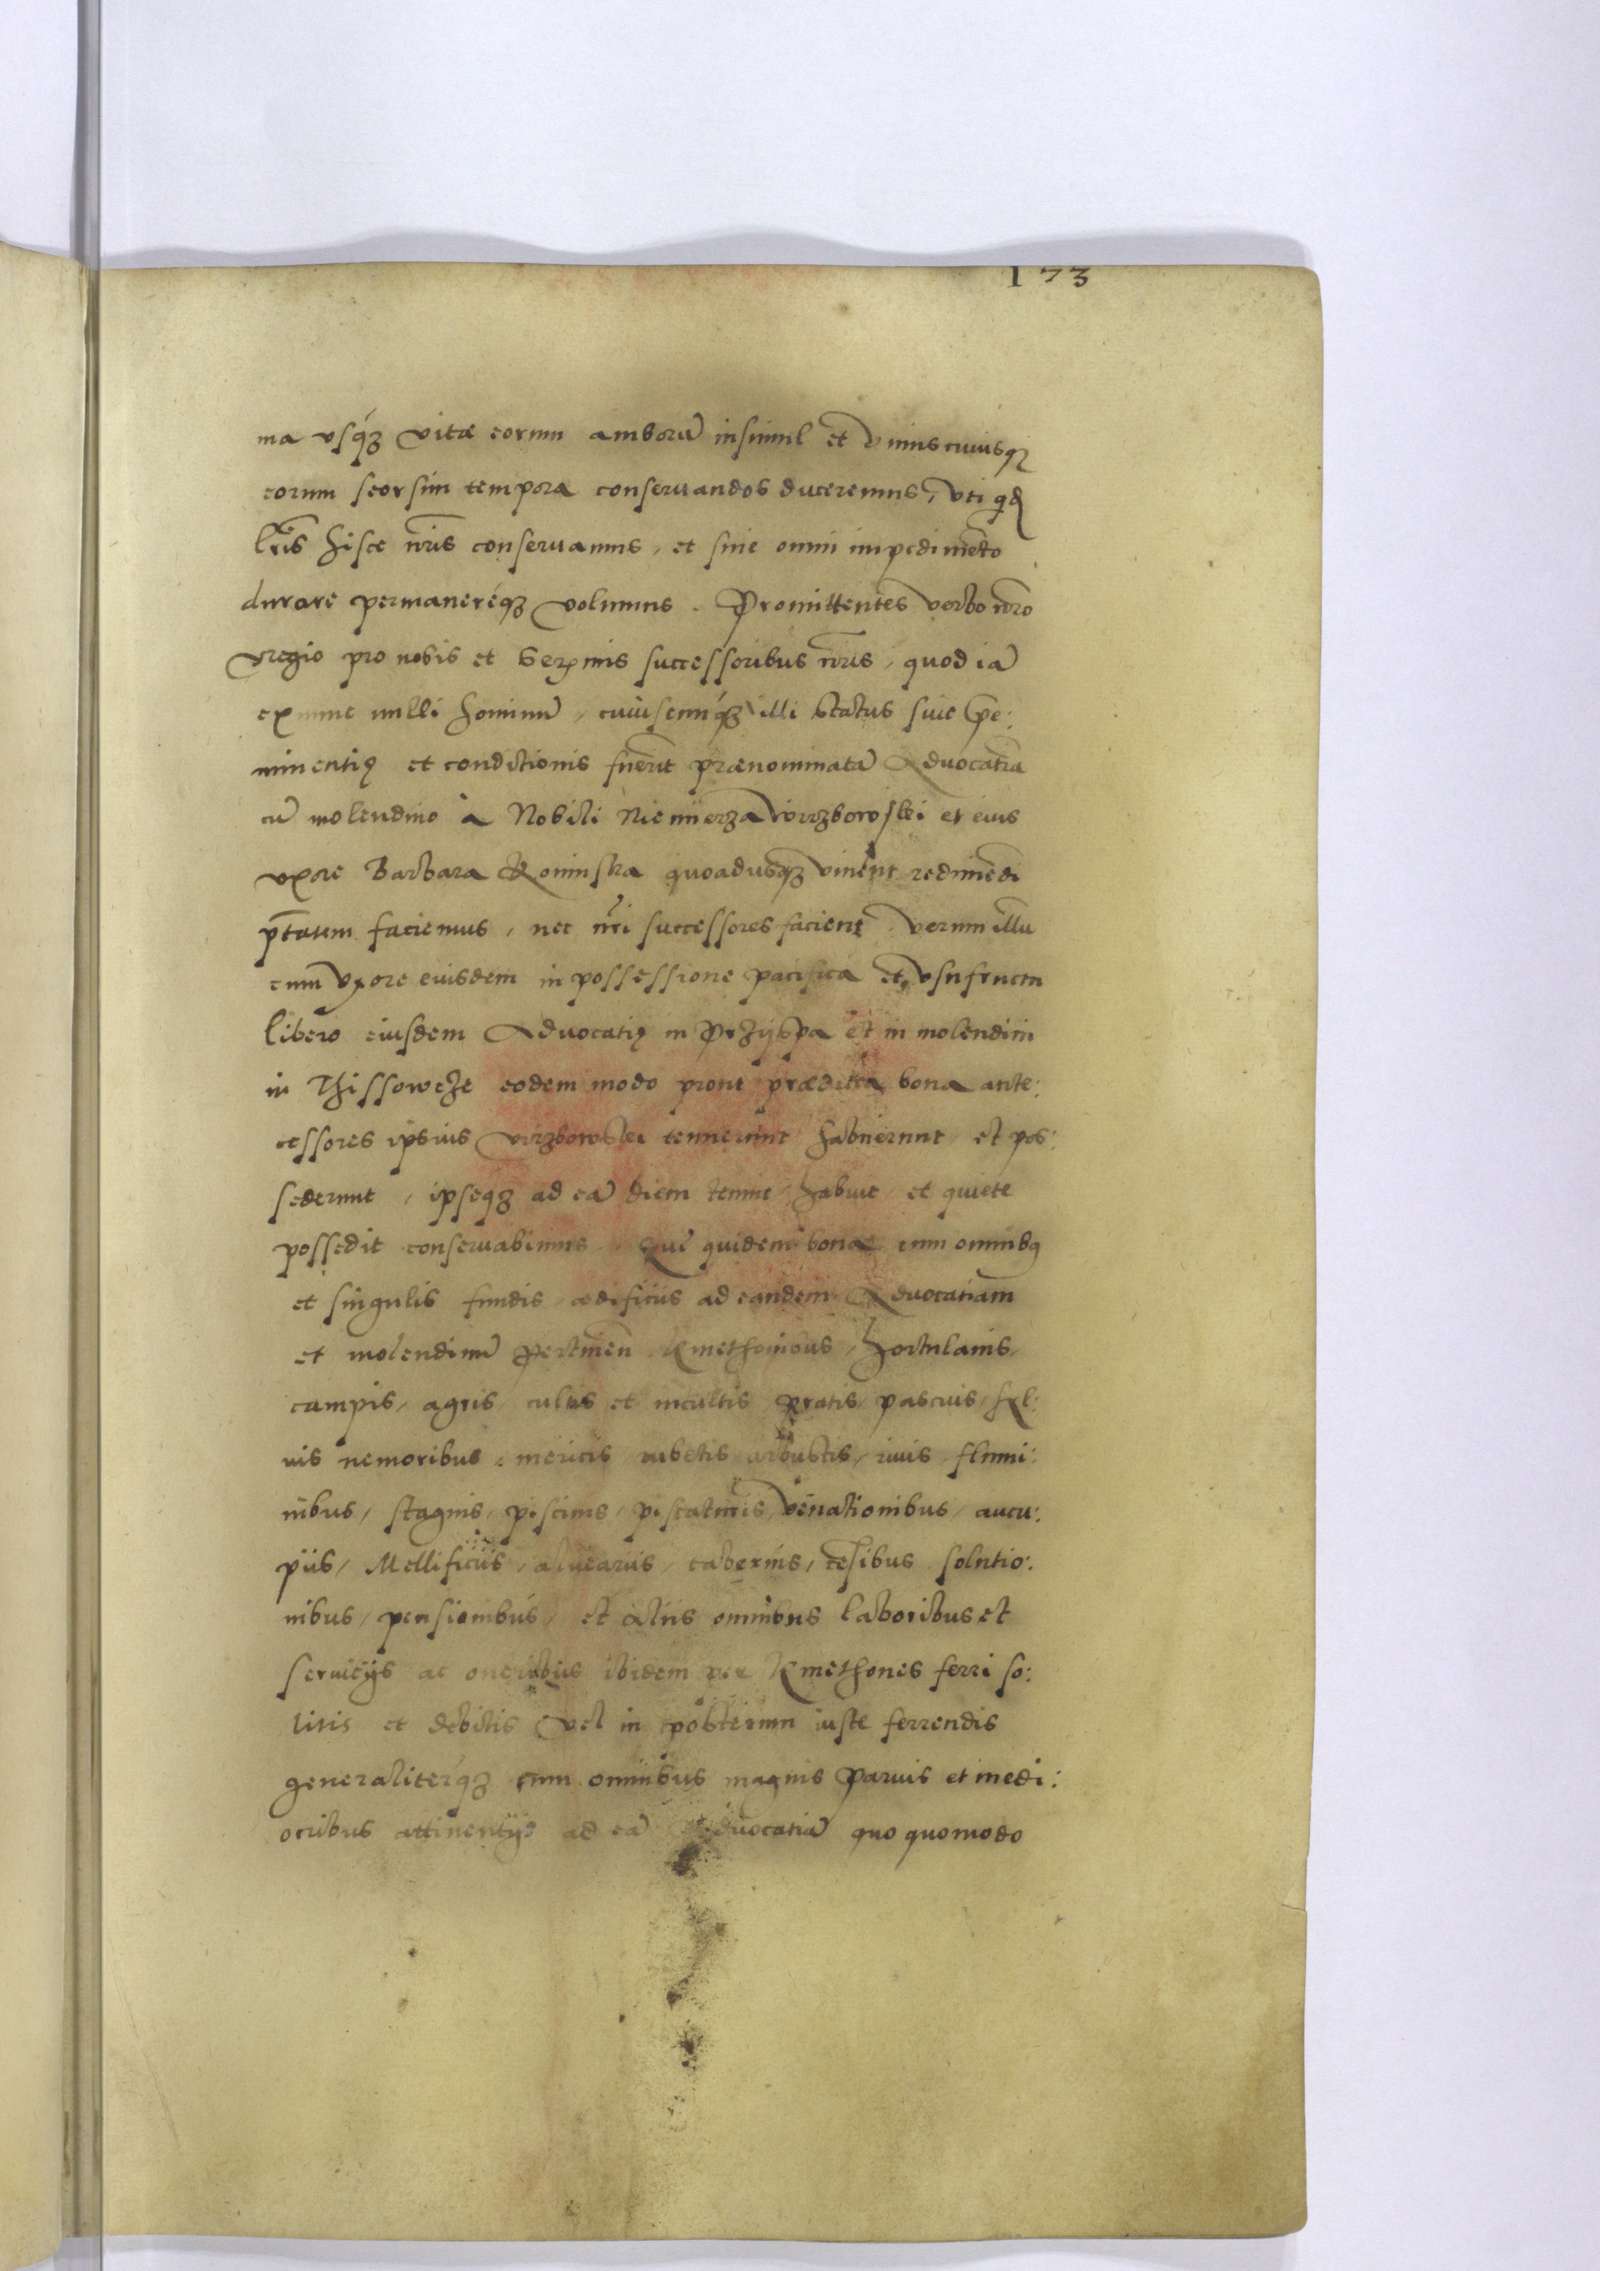 173
ma usq́ꝫ vitæ eorum amborū insimul et Vniuscuiusqꝫ
eorum seorsim tempora conseruandos duceremus, vti qd
lr̃is hisce nr̃is conseruamus, et sine omni impedimēto
durare permaneréqꝫ volumus. Promittentes verbo nr̃o
regio pro nobis et Serᵐⁱˢ successoribus nr̃is, quod iā
ex nunc nulli hominū, cuiuscunq́ꝫ illi status siue p̄e:
minentię et conditionis fuerit prænominatā Aduocatiā
cū molendino à Nobili Niemierza Wirzbowski et eius
vxore Barbara Koninska quoadusqꝫ vixerit redimēdi
p̄tatem faciemus, nec nr̃i successores facient. Verum illū
cum vxore eiusdem in possessione pacifica et vsufructu
libero eiusdem Aduocatię in Przyspa et in molendini
in Thissowcze eodem modo pront prædicta bona ante:
cessores ipsius Wirzbowski tenuerunt habuerunt et pos:
sederunt, ipseqꝫ ad eā diem tenuit habuit et quiete
possedit conseruabimus. Quę quidem bona cum omnibꝫ
et singulis fundis ædificiis ad eandem Aduocatiam
et molendinū pertineñ Kmethonibus, hortulanis,
campis, agris cultis et incultis pratis pascuis syl:
uis nemoribus mericis rubetis arbustis, riuis flumi:
nibus, stagnis, piscinis, piscaturis, venationibus, aucu:
piis, Mellificiis, aluearis, tabernis, cēsibus solutio:
nibus, pensionibus, et aliis omnibus laboribus et
seruicijs ac oneribus ibidem per Kmethones ferri so:
litis et debitis vel in posterum iuste ferrendis
generaliterq́ꝫ cum omnibus magnis paruis et medi:
ocribus attinentijs ad eā Aduocatiā quo quomodo